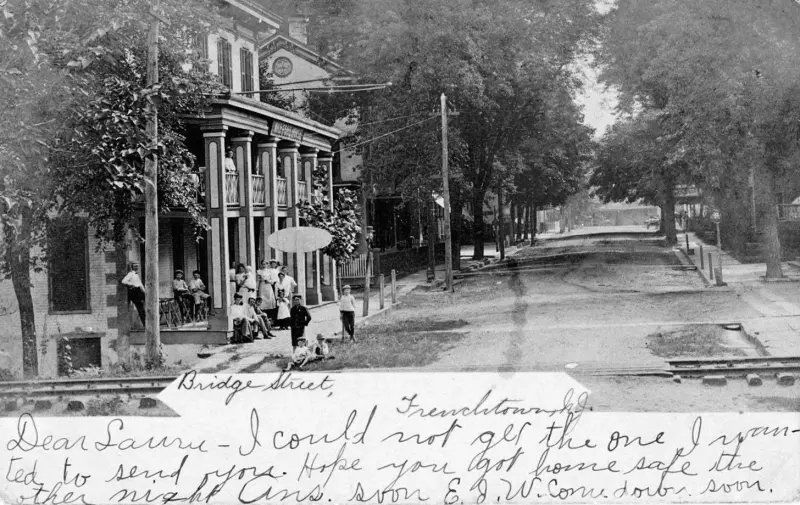 Bridge Street,
Frenchtown N.J.
Dear Laurie - I could not get the one I wan-
ted to send you. Hope you got home safe the
other night Ans. soon E. J. W. Come down soon.